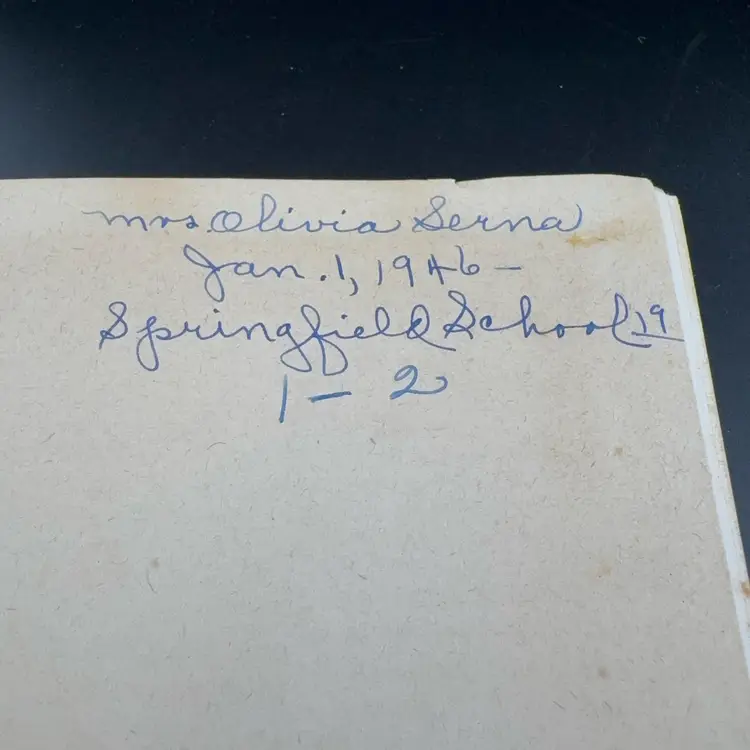 Mrs. Olivia Serna
Jan. 1, 1946 -
Springfield School 19
1 - 2